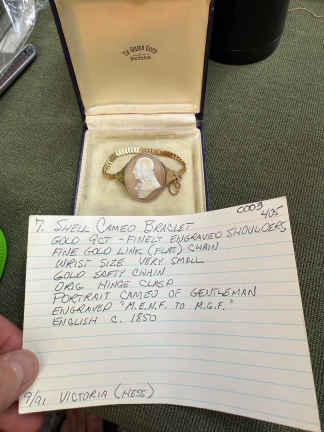 Victoria
0003
405-
7. SHELL CAMEO BRACLET
GOLD 9CT - FINELY ENGRAVED SHOULDERS
FINE GOLD LINK (FLAT) CHAIN
WRIST SIZE VERY SMALL
GOLD SAFTY CHAIN
ORIG HINGE CLASP
PORTRAIT CAMEO OF GENTLEMAN
ENGRAVED "M.E.N.F. TO M.G.F."
ENGLISH C. 1850
9/91 VICTORIA (HESS)